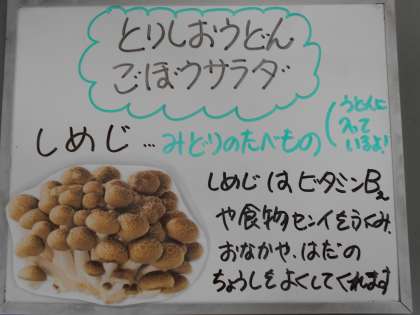 とりしおうどん
ごぼうサラダ
しめじ…みどりのたべもの
(うどんに
入って
いるよ!)
しめじはビタミンB2
や食物センイをふくみ、
おなかや、はだの
ちょうしをよくしてくれます